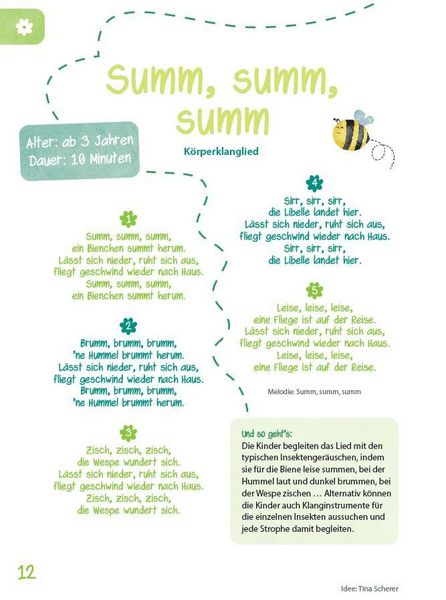 Summ, summ,
summ
Körperklanglied
Alter: ab 3 Jahren
Dauer: 10 Minuten
1
Summ, summ, summ,
ein Bienchen summt herum.
Lässt sich nieder, ruht sich aus,
fliegt geschwind wieder nach Haus.
Summ, summ, summ,
ein Bienchen summt herum.
2
Brumm, brumm, brumm,
'ne Hummel brummt herum.
Lässt sich nieder, ruht sich aus,
fliegt geschwind wieder nach Haus.
Brumm, brumm, brumm,
'ne Hummel brummt herum.
3
Zisch, zisch, zisch,
die Wespe wundert sich.
Lässt sich nieder, ruht sich aus,
fliegt geschwind wieder nach Haus.
Zisch, zisch, zisch,
die Wespe wundert sich.
4
Sirr, sirr, sirr,
die Libelle landet hier.
Lässt sich nieder, ruht sich aus,
fliegt geschwind wieder nach Haus.
Sirr, sirr, sirr,
die Libelle landet hier.
5
Leise, leise, leise,
eine Fliege ist auf der Reise.
Lässt sich nieder, ruht sich aus,
fliegt geschwind wieder nach Haus.
Leise, leise, leise,
eine Fliege ist auf der Reise.
Melodie: Summ, summ, summ
Und so geht's:
Die Kinder begleiten das Lied mit den
typischen Insektengeräuschen, indem
sie für die Biene leise summen, bei der
Hummel laut und dunkel brummen, bei
der Wespe zischen … Alternativ können
die Kinder auch Klanginstrumente für
die einzelnen Insekten aussuchen und
jede Strophe damit begleiten.
12
Idee: Tina Scherer